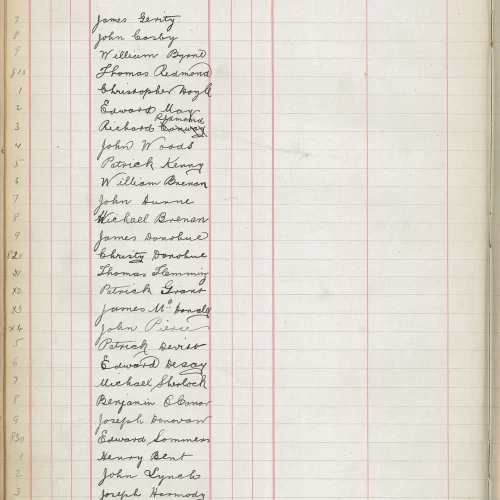 7 James Gerity
8 John Cosby
9 William Byrne
810 Thomas Redmond
1 Christopher Doyle
2 Edward May
Redmond
3 Richard Conway
4 John Woods
5 Patrick Kenny
6 William Brenan
7 John Dunne
8 Michael Brenan
9 James Donohue
820 Christy Donohue
X1 Thomas Flemming
X2 Patrick Grant
X3 James Mc Donald
X4 John Pierce
5 Patrick Devitt
6 Edward
7 Michael Sherlock
8 Benjamin O'Conor
9 Joseph Donovan
830 Edward Sommers
1 Henry Bent
2 John Lynch
3 Joseph Harmody